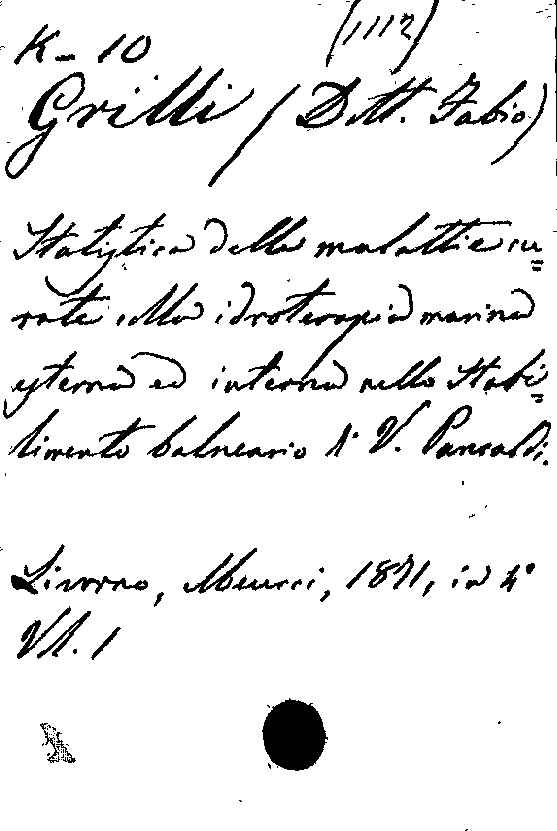 K-10 (1112)
Grilli (Dott. Fabio)
Statistica delle malattie cu=
rate colla idroterapia marina
esterna ed interna nello Stabi=
limento balneario di V. Pancaldi.
Livorno, Meucci, 1871, in 4°
Vl. 1